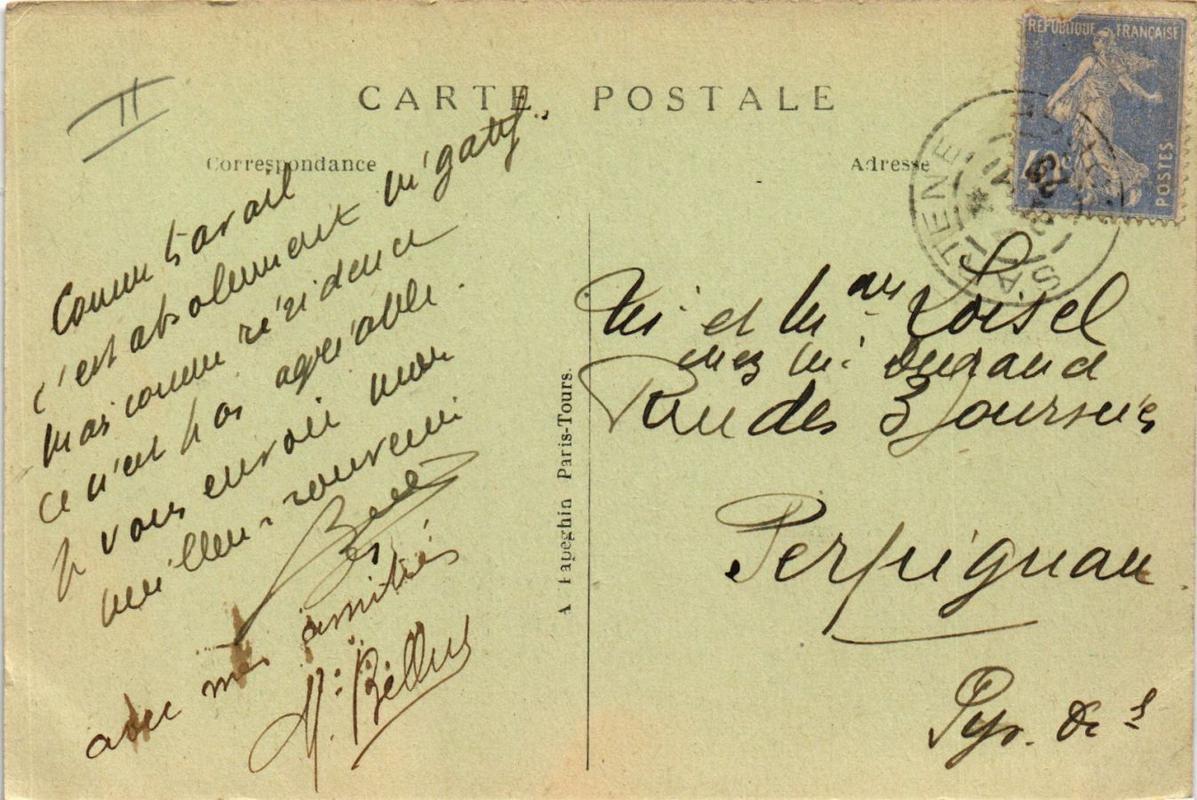 II
CARTE POSTALE
Correspondance
Comme travail
c'est absolument négatif.
mais comme résidence
ce n'est pas agréable.
Je vous envoie mon
meilleur souvenir
avec mes amitiés
M. Bellus
A Papeghin Paris-Tours.
Adresse
REPUBLIQUE FRANÇAISE
40c
POSTES
Mr et Mme Loisel
chez Mr Dugand
Rue des 3 Journées
Perpignan
Pyr. Ores